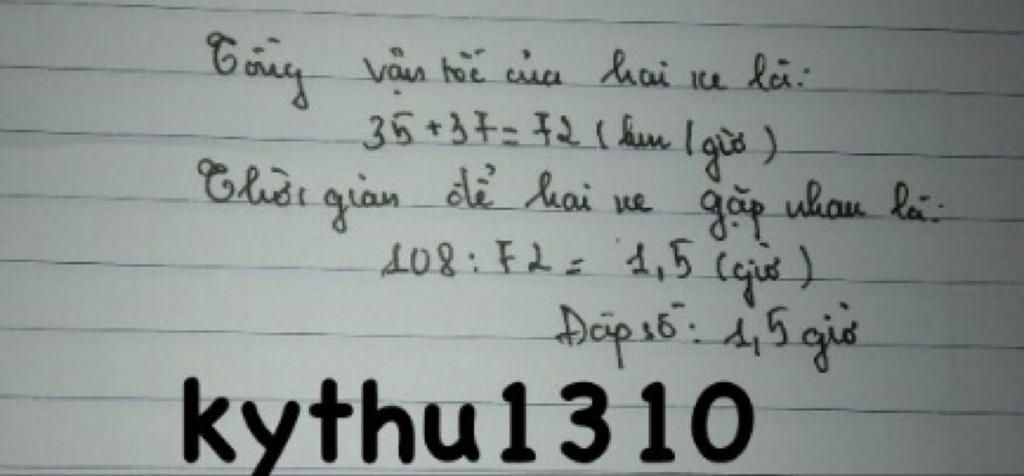 Tổng vận tốc của hai xe là:
35 + 37 = 72 (km/giờ)
Thời gian để hai xe gặp nhau là:
108 : 72 = 1,5 (giờ)
Đáp số: 1,5 giờ
kythu1310